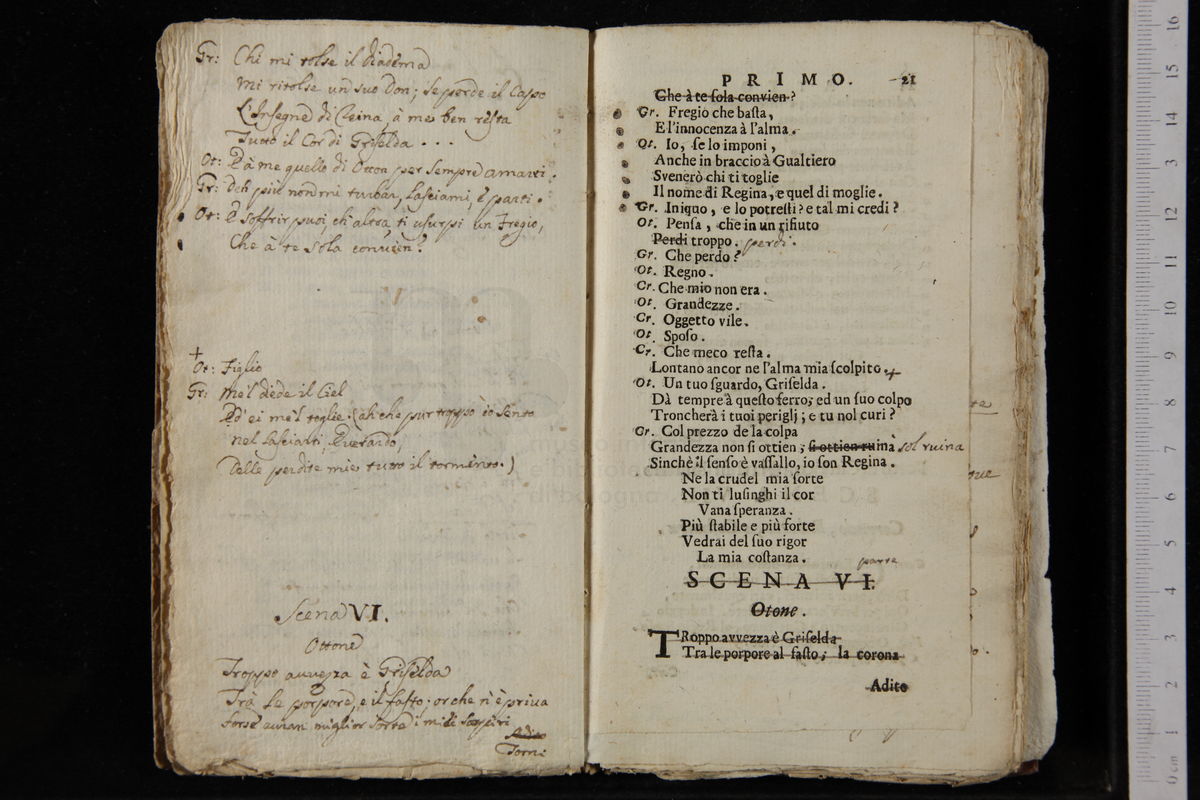 Gr: Chi mi tolse il Diadema
Mi ritolse un suo Don; se perde il Capo
L'Insegne di Reina, à me ben resta
Tutto il Cor di Griselda . . .
Ot: E à me quello di Otton per sempre amarti.
Gr: Deh più non mi turbar, Lasciami, e parti.
Ot: E soffrir puoi, ch'altra ti usurpi un Fregio,
Che à te sola convien?
+
Ot: Figlio
Gr: Me'l diede il Ciel
Ed ei me'l toglie. (ah che pur troppo io sento
nel lasciarti, Everardo,
Delle perdite mie tutto il tormento.)
Scena VI.
Ottone
Troppo avvezza è Griselda
Trà le porpore, e il fasto; or che n'è priva
forse avran miglior sorte i miei sospiri
Torni
PRIMO. 21
Che à te sola convien?
Gr. Fregio che basta,
E l'innocenza à l'alma.
Ot. Io, se lo imponi,
Anche in braccio à Gualtiero
Svenerò chi ti toglie
Il nome di Regina, e quel di moglie.
Gr. Iniquo, e lo potresti? e tal mi credi?
Ot. Pensa, che in un rifiuto
Perdi troppo. perdi.
Gr. Che perdo?
Ot. Regno.
Cr. Che mio non era.
Ot. Grandezze.
Cr. Oggetto vile.
Ot. Sposo.
Cr. Che meco resta.
Lontano ancor ne l'alma mia scolpito. +
Ot. Un tuo sguardo, Griselda.
Dà tempre à questo ferro; ed un suo colpo
Troncherà i tuoi periglj; e tu nol curi?
Gr. Col prezzo de la colpa
Grandezza non si ottien; si ottien ruina sol ruina
Sinchè il senso è vassallo, io son Regina.
Ne la crudel mia sorte
Non ti lusinghi il cor
Vana speranza.
Più stabile e più forte
Vedrai del suo rigor
La mia costanza. parte
SCENA VI.
Otone.
TRoppo avvezza è Griselda
Tra le porpore al fasto; la corona
Adito